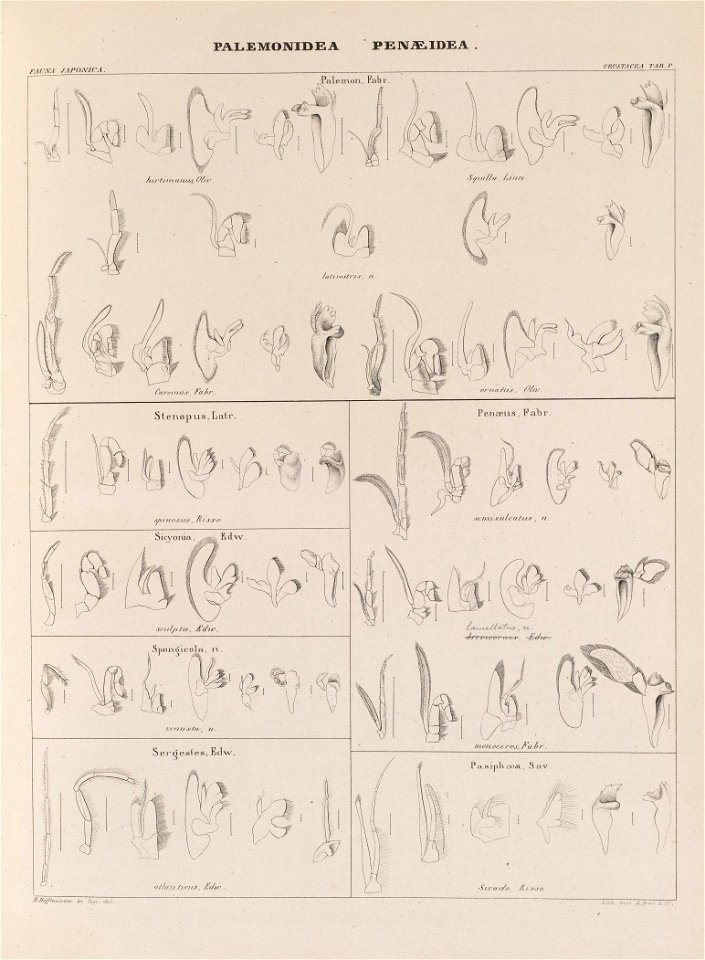 PALEMONIDEA PENÆIDEA.
FAUNA JAPONICA.
CRUSTACEA TAB. P
Palemon, Fabr.
hirtimanus, Oliv.
Squilla, Linn.
latirostris, n.
Carcinus, Fabr.
ornatus, Oliv.
Stenopus, Latr.
spinosus, Risso
Penæus, Fabr.
semisulcatus, n.
Sicyonia, Edw.
sculpta, Edw.
Lamellatus, n.
brevicornis, Edw.
Spongicola, n.
venusta, n.
monoceros, Fabr.
Sergestes, Edw.
atlanticus, Edw.
Pasiphæa, Sav.
Sivado, Risso